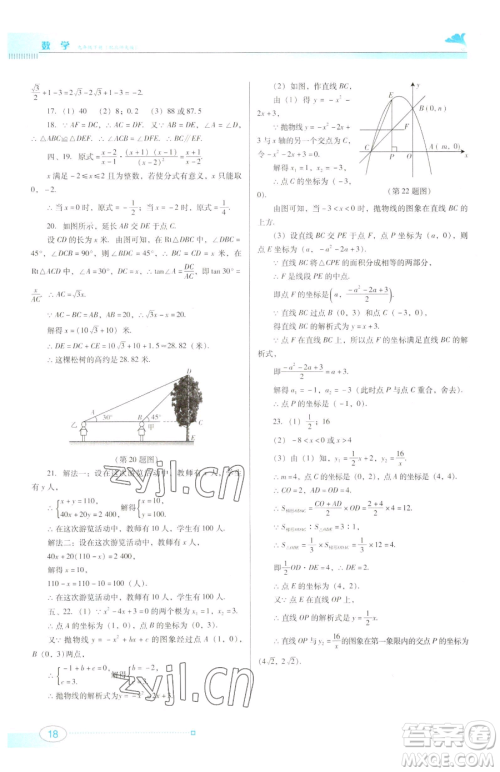 数 学
√3/2+1-3=2√3+√3-2.
17. (1) 40 (2) 8; 0.2 (3) 88或87.5
18. ∵AF=DC, ∴AC=DF. 又∵AB=DE, ∠A=∠D,
∴△ABC≌△DEF. ∴∠ACB=∠DFE. ∴BC∥EF.
四、19. 原式=
x满足-2≤x≤2且为整数, 若使分式有意义, x只能取
0, -2.
20. 如图所示, 延长AB交DE于点C.
设CD的长为x米. 由图可知, 在Rt△DBC中, ∠DBC=
45°, ∠DCB=90°, 则∠BDC=45°, ∴BC=CD=x米. 在
Rt△ACD中, ∠A=30°, DC=x, ∴tan∠A=DC/AC, 即√3/3=
x/AC. ∴AC=√3x.
∵AC-BC=AB, AB=20米, ∴√3x-x=20.
解得x=10√3+10.
∴DE=DC+CE=10√3+10+1.5≈28.82(米).
∴这棵松树的高约是28.82米.
D
A 30° B 45° C
乙 甲 E
(第20题图)
21. 解法一: 设在这次游览活动中, 教师有x人, 学生有
y人.
∴{x+y=110, 40x+20y=2 400. 解得{x=10, y=100.
∴在这次游览活动中, 教师有10人, 学生有100人.
解法二: 设在这次游览活动中, 教师有x人.
40x+20(110-x)=2 400.
解得x=10.
110-x=110-10=100(人).
∴在这次游览活动中, 教师有10人, 学生有100人.
五、22. (1) ∵x²-4x+3=0的两个根为x₁=1, x₂=3,
∴点A的坐标为(1, 0), 点B的坐标为(0, 3).
又∵抛物线y=-x²+bx+c的图象经过点A(1, 0)、
B(0, 3)两点,
∴{-1+b+c=0, c=3. 解得{b=-2, c=3.
∴抛物线的解析式为y=-x²-2x+3.
18
(2) 如图, 作直线BC.
由(1)得y=-x²-2x+3.
∵抛物线y=-x²-2x+3与
x轴的另一个交点为C, 令y=0,
∴-x²-2x+3=0.
解得x₁=1, x₂=-3.
∴点C的坐标为(-3, 0).
E
B(0, n)
F
C P O A(m, 0) x
(第22题图)
由图可知, 当-3<x<0时, 抛物线的图象在直线BC的
上方.
(3) 设直线BC交PE于点F, P点坐标为(a, 0), 则
点E的坐标为(a, -a²-2a+3).
∵直线BC将△CPE的面积分成相等的两部分,
∴点F是线段PE的中点.
即点F的坐标是(a, (-a²-2a+3)/2).
∵直线BC过点B(0, 3)和点C(-3, 0),
易得直线BC的解析式为y=x+3.
∵点F在直线BC上, ∴点F的坐标满足直线BC的解
析式,
即(-a²-2a+3)/2=a+3.
解得a₁=-1, a₂=-3(此时点P与点C重合, 舍去).
∴点P的坐标是(-1, 0).
23. (1) 1/2; 16
(2) -8<x<0或x>4
(3) 由(1)知, y₁=1/2x+2, y₂=16/x.
∴m=4, 点C的坐标是(0, 2), 点A的坐标是(4, 4).
∴CO=2, AD=OD=4.
∴DE=2.
∴点E的坐标为(4, 2).
又∵点E在直线OP上,
∴直线OP的解析式是y=1/2x.
∴直线OP与y₂=16/x的图象在第一象限内的交点P的坐标为
(4√2, 2√2).
zyjl.cn
zyjl.cn
答案圈
MXQE.COM